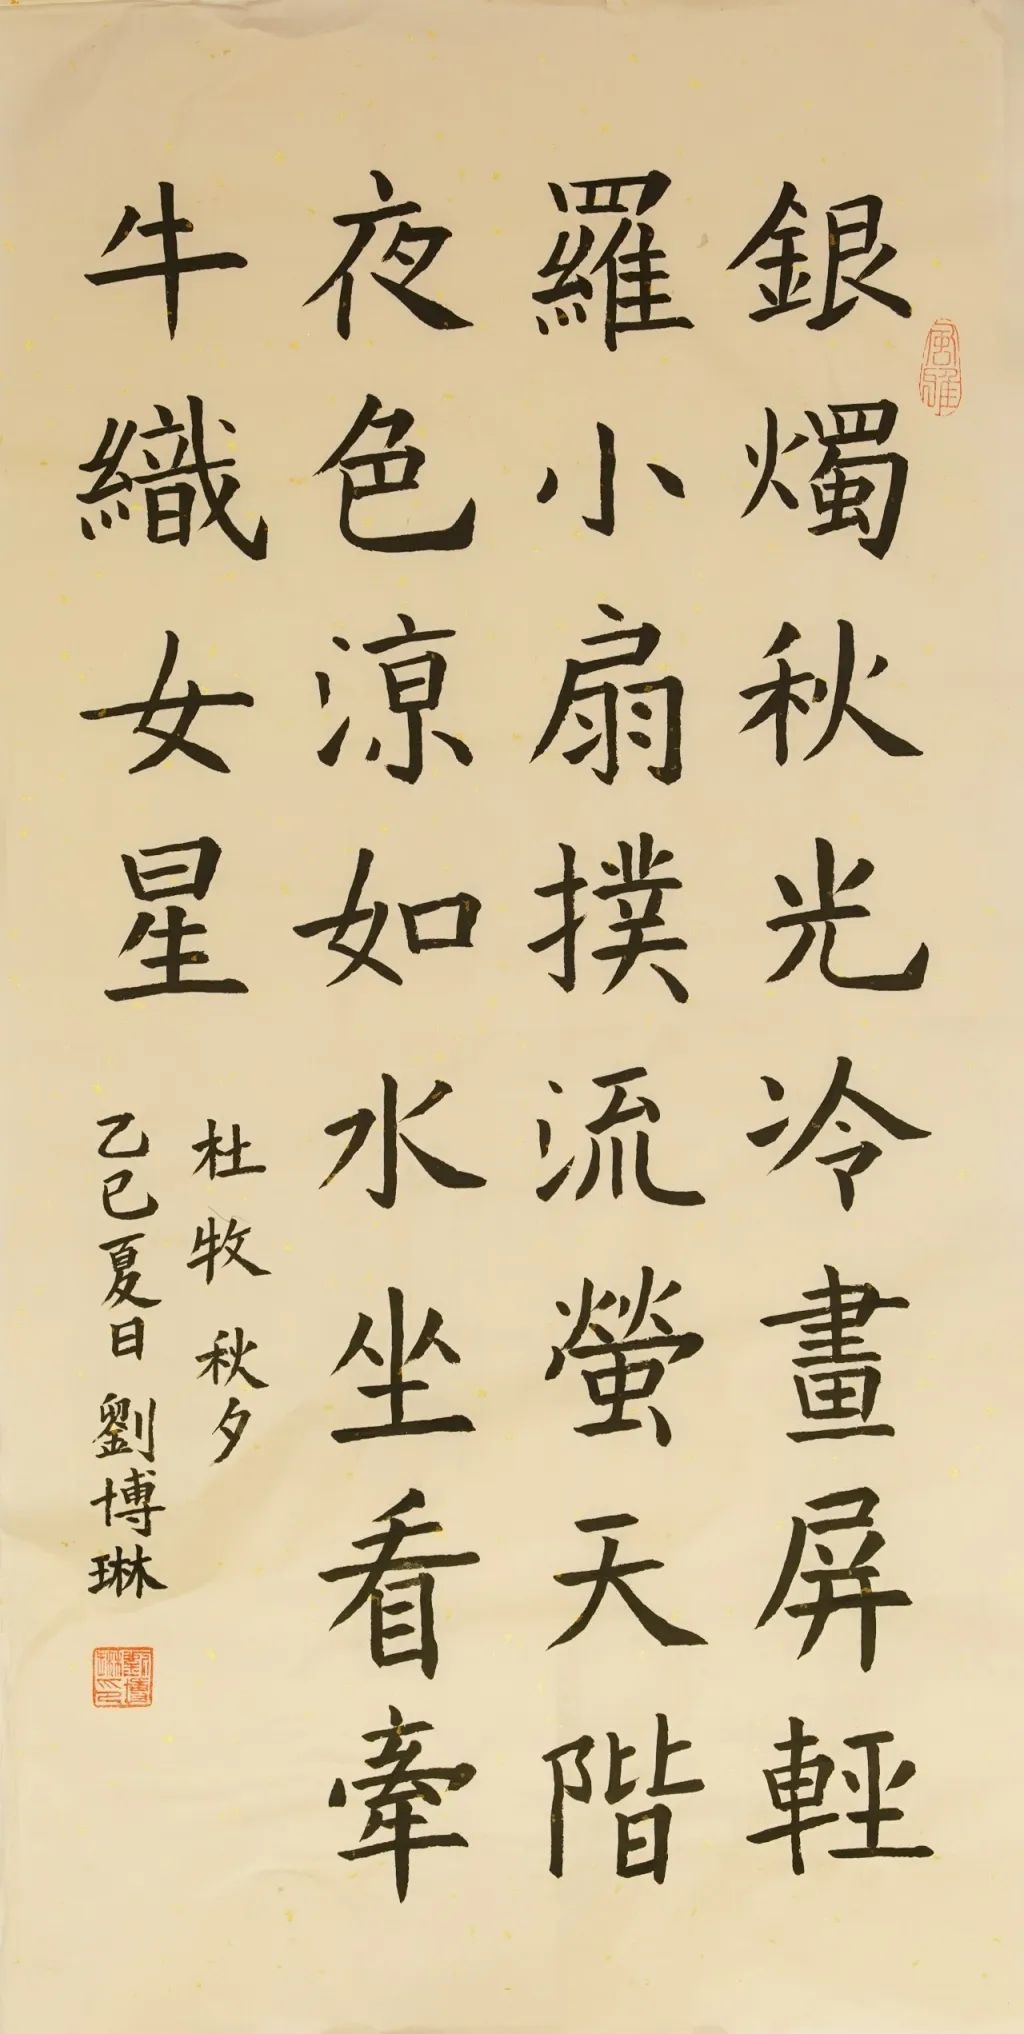 銀燭秋光冷畫屏輕
羅小扇撲流螢天階
夜色涼如水坐看牽
牛織女星
杜牧 秋夕
乙巳夏日 劉博琳
風雅
劉博琳印